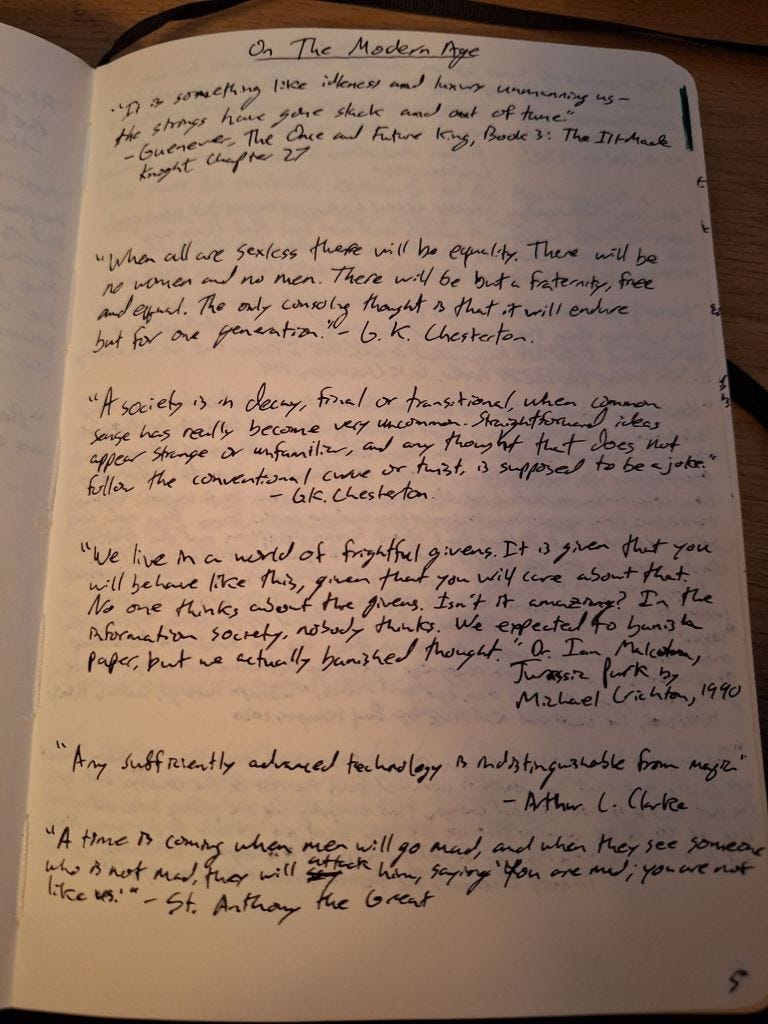 On The Modern Age
"It is something like idleness and luxury unmanning us-
the strings have gone slack and out of tune."
- Guenever, The Once and Future King, Book 3: The Ill-Made
Knight Chapter 27
"When all are sexless there will be equality. There will be
no women and no men. There will be but a fraternity, free
and equal. The only consoling thought is that it will endure
but for one generation." - G. K. Chesterton.
"A society is in decay, final or transitional, when common
sense has really become very uncommon. Straightforward ideas
appear strange or unfamiliar, and any thought that does not
follow the conventional curve or twist, is supposed to be a joke."
- G.K. Chesterton.
"We live in a world of frightful givens. It is given that you
will behave like this, given that you will care about that.
No one thinks about the givens. Isn't it amazing? In the
information society, nobody thinks. We expected to banish
paper, but we actually banished thought." Dr. Ian Malcolm,
Jurassic Park by
Michael Crichton, 1990
"Any sufficiently advanced technology is indistinguishable from magic"
- Arthur C. Clarke
"A time is coming when men will go mad, and when they see someone
who is not mad, they will attack him, saying 'You are mad; you are not
like us.'" - St. Anthony the Great
5